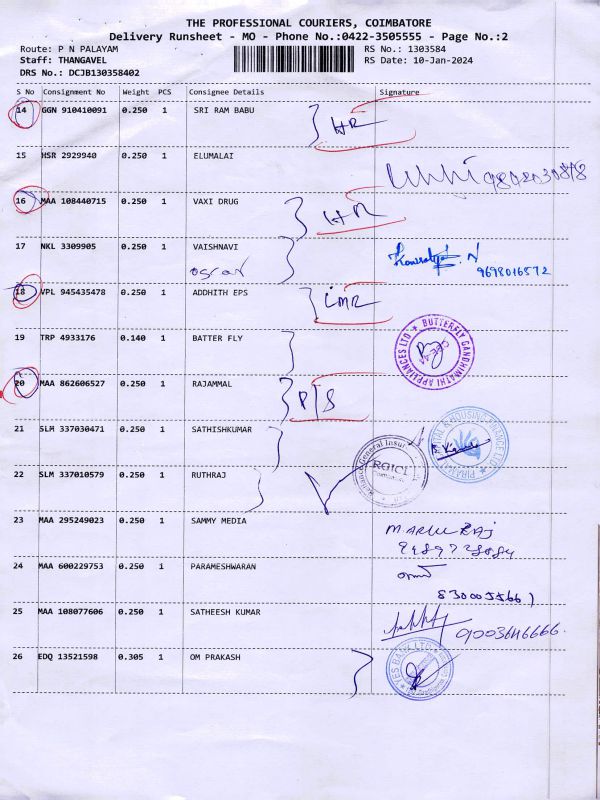 THE PROFESSIONAL COURIERS, COIMBATORE
Delivery Runsheet - MO - Phone No.:0422-3505555 - Page No.:2
Route: P N PALAYAM RS No.: 1303584
Staff: THANGAVEL RS Date: 10-Jan-2024
DRS No.: DCJB130358402
S No Consignment No Weight PCS Consignee Details Signature
14 GGN 910410091 0.250 1 SRI RAM BABU
15 HSR 2929940 0.250 1 ELUMALAI
16 MAA 108440715 0.250 1 VAXI DRUG
17 NKL 3309905 0.250 1 VAISHNAVI
9698016572
18 VPL 945435478 0.250 1 ADDHITH EPS
19 TRP 4933176 0.140 1 BATTER FLY
BUTTERFLY GANDHIMATHI APPLIANCES LTD
20 MAA 862606527 0.250 1 RAJAMMAL P/S
21 SLM 337030471 0.250 1 SATHISHKUMAR
22 SLM 337010579 0.250 1 RUTHRAJ
General Insur
RGICL
23 MAA 295249023 0.250 1 SAMMY MEDIA
24 MAA 600229753 0.250 1 PARAMESHWARAN
25 MAA 108077606 0.250 1 SATHEESH KUMAR
9003646666.
26 EDQ 13521598 0.305 1 OM PRAKASH
YES BANK LTD